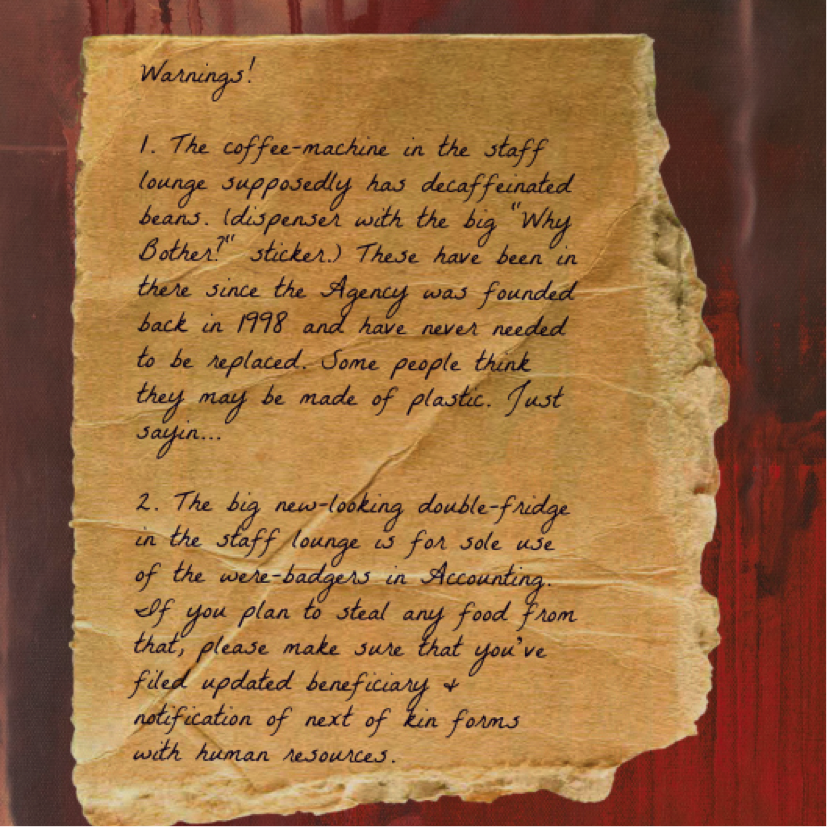 Warnings!
1. The coffee-machine in the staff
lounge supposedly has decaffeinated
beans. (dispenser with the big "Why
Bother?" sticker.) These have been in
there since the Agency was founded
back in 1998 and have never needed
to be replaced. Some people think
they may be made of plastic. Just
sayin...
2. The big new-looking double-fridge
in the staff lounge is for sole use
of the were-badgers in Accounting.
If you plan to steal any food from
that, please make sure that you've
filed updated beneficiary &
notification of next of kin forms
with human resources.